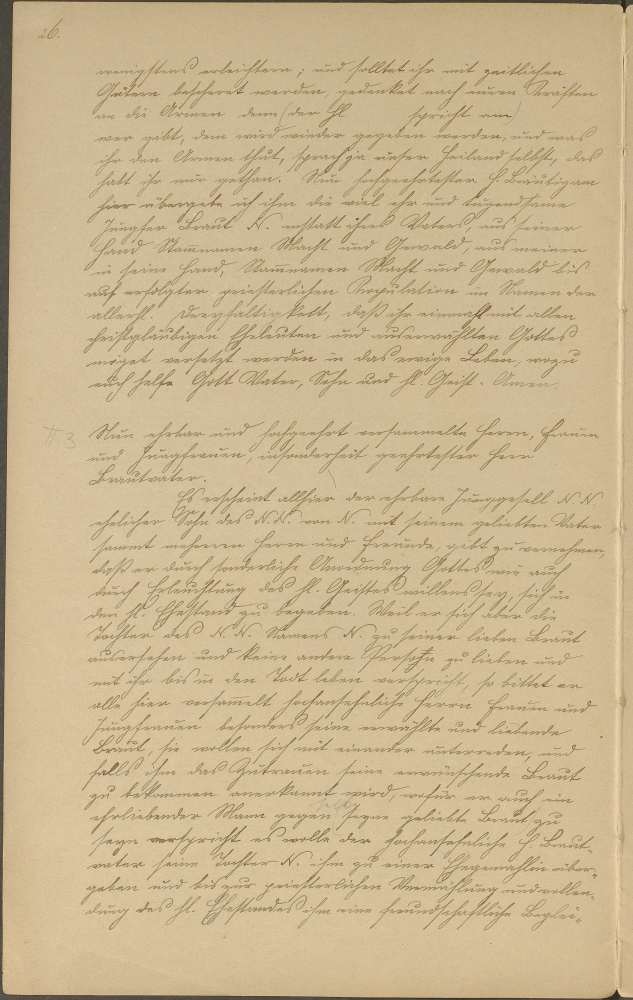 26.
wenigstens erleichtern; und solltet ihr mit zeitlichen
Gütern bescheret werden, gedenket nach euren Kräften
an die Armen denn (der hl spricht am)
wer gebt, dem wird wieder gegeben werden, und was
ihr den Armen thut, sprach ja unser Heiland selbst, das
habt ihr mir gethan. Nun hochgeehrtester H. Bräutigam
hier übergebe ich ihm die viel ehr und tugendsame
Jungfer Braut N. anstatt ihres Vaters, aus seiner
Hand Macht und Gewald, aus meiner
in seine Hand, Macht und Gewald bis
auf erfolgter priesterlichen Kopulation im Namen der
allerhl. Dreyfaltigkeit, daß ihr einmahl mit allen
christgläubigen Eheleuten und auserwählten Gottes
möget versetzt werden in das ewige Leben, wozu
euch helfe Gott Vater, Sohn und hl. Geist. Amen.
II 3 Nun ehrbar und hochgeehrt versammelte Herrn, Frauen
und Jungfrauen, insonderheit geehrtester Herr
Brautvater.
Es erscheint allhier der ehrbare Junggesell N. N.
ehelicher Sohn des N. N. von N. mit seinem geliebten Vater
sammt mehreren Herrn und Freunde, gibt zu vernehmen,
daß er durch sonderliche Anordnung Gottes wie auch
durch Erleuchtung des hl. Geistes willens sey, sich in
den hl. Ehestand zu begeben. Weil er sich aber die
Tochter des N. N. Namens N. zu seiner lieben Braut
ausersehen und keine andere Person zu lieben und
mit ihr bis in den Todt leben verspricht, so bittet er
alle hier versamelt hochansehnliche Herrn Frauen und
Jungfrauen besonders seine erwählte und liebende
Braut, sie wollen sich mit einander unterreden, und
falls ihm das Zutrauen seine erwünschende Braut
zu bekommen anerkannt wird, wofür er auch ein
ehrliebender Mann gegen seine geliebte Braut zu
seyn verspricht es wolle der hochansehnliche H. Braut-
vater seine Tochter N. ihm zu einer Ehegemahlin über-
geben und bis zur priesterlichen Vermählung und vollen-
dung des hl. Ehestandes ihm eine freundschaftliche Beglei-